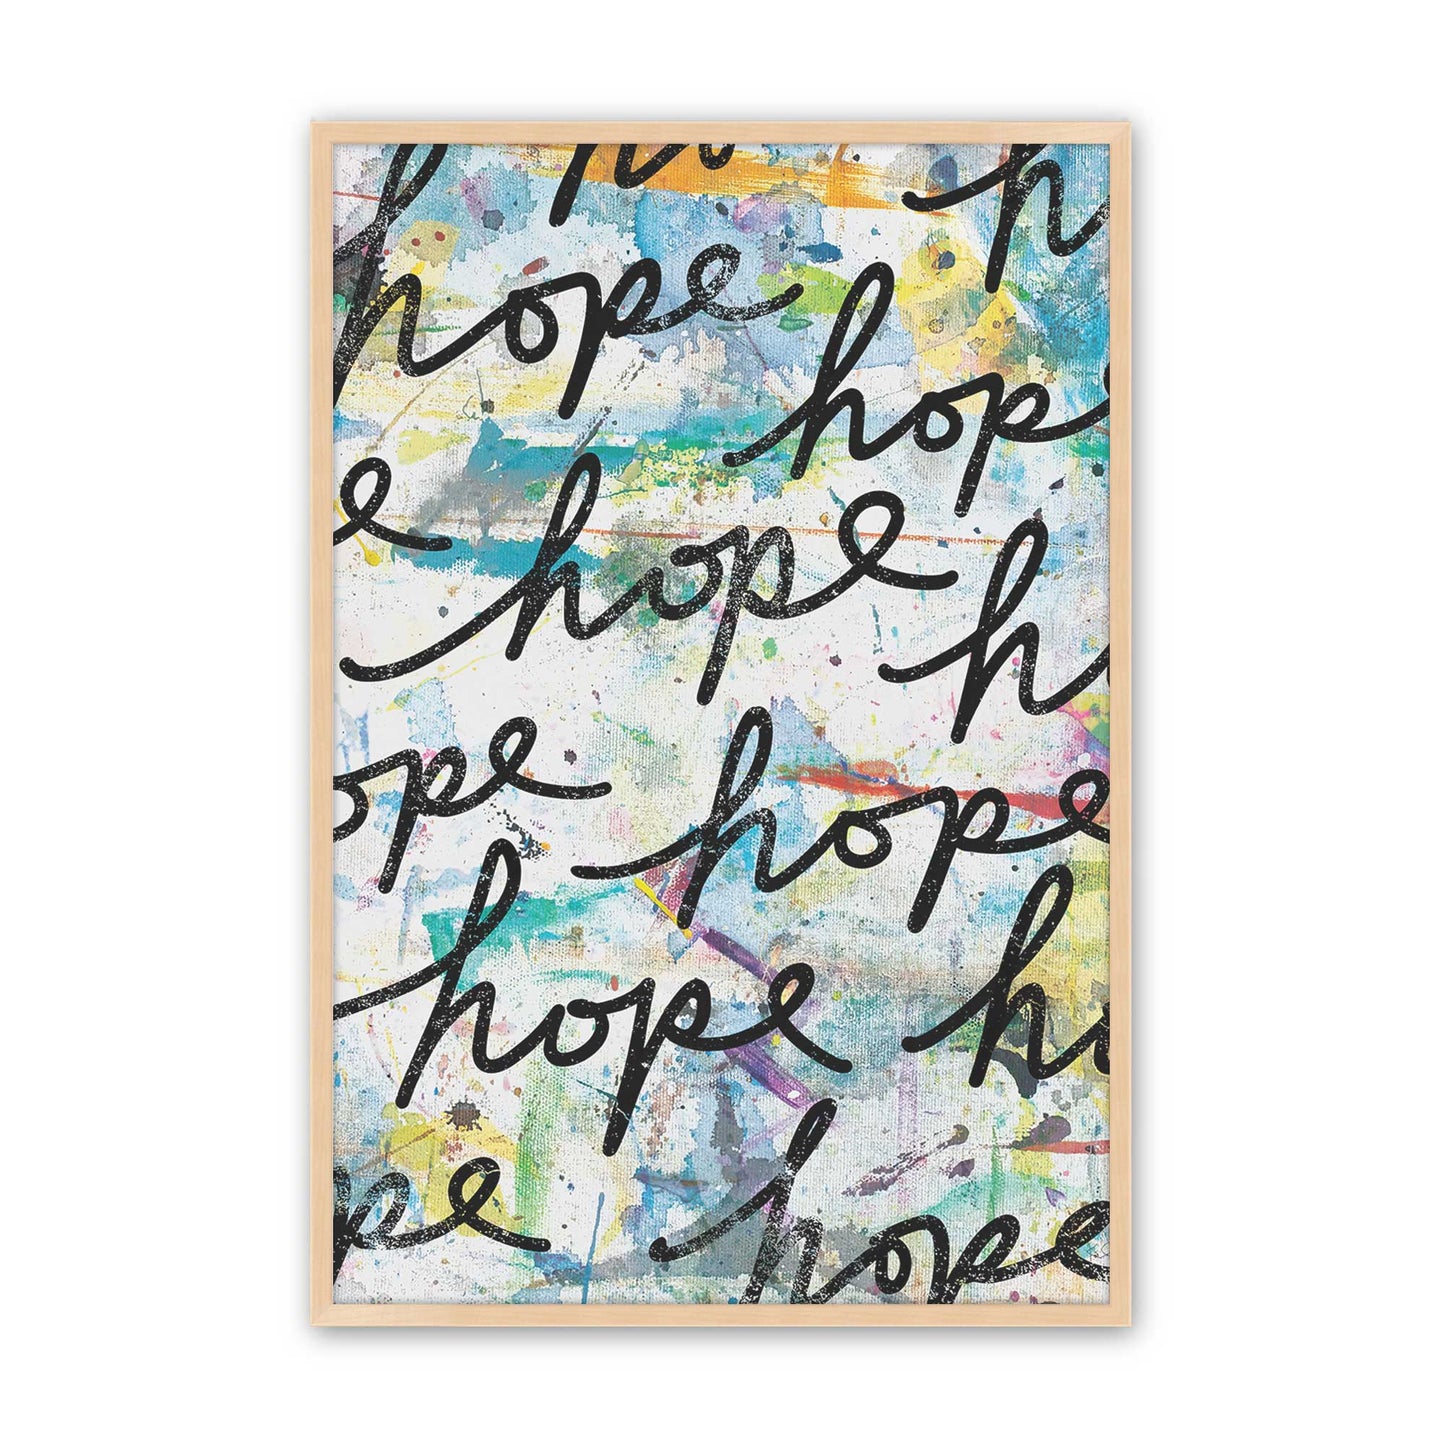 ho h
hope hop
e hope h
ope hope
hope h
pe hope